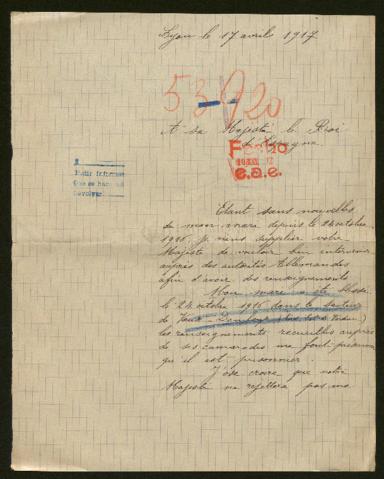 Lyon le 17 avril 1917
53920
A sa Majesté le Roi
d'Espagne
Fecho
e.a.e.
Pedir informes
Etant sans nouvelles
de mon mari depuis le 24 octobre
1916, je viens supplier votre
Majesté de vouloir bien intervenir
auprès des autorités Allemandes
afin d'avoir des renseignements
Mon mari a été blessé
le 24 octobre 1916 dans le secteur
de Vaux
les renseignements recueillis auprès
de ses camarades me font présumer
qu'il est prisonnier.
J'ose croire que votre
Majesté ne rejettera pas ma